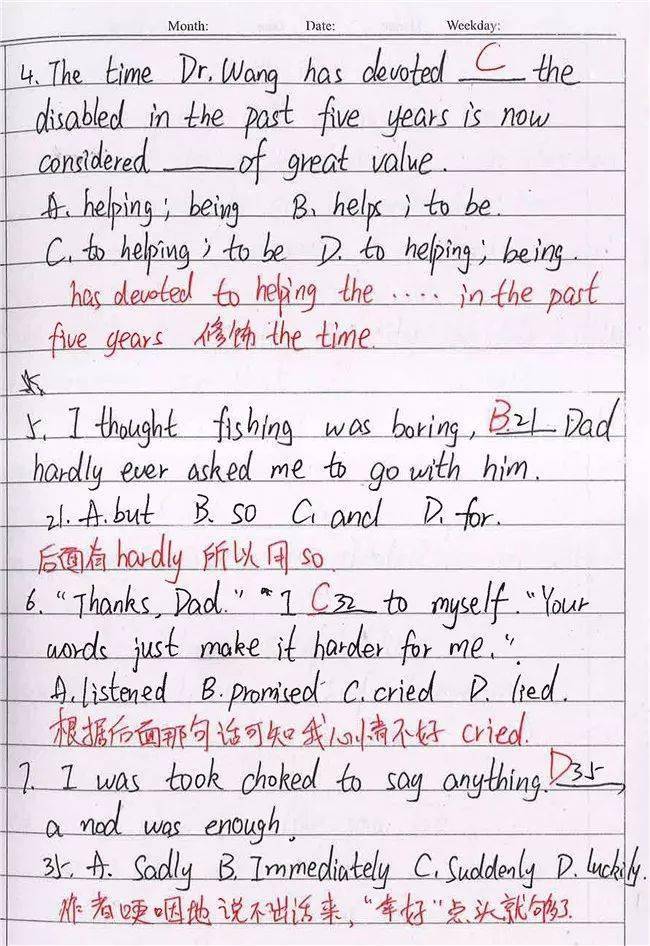 Month: Date: Weekday:
4. The time Dr. Wang has devoted C the
disabled in the past five years is now
considered ____ of great value.
A. helping; being B. helps; to be.
C. to helping; to be D. to helping; being.
has devoted to helping the .... in the past
five years 修饰 the time.
5. I thought fishing was boring, B.21 Dad
hardly ever asked me to go with him.
21. A. but B. so C. and D. for.
后面有 hardly 所以用 so.
6. "Thanks, Dad." "I C32 to myself. "Your
words just make it harder for me."
A. listened B. promised C. cried D. lied.
根据后面那句话可知我心情不好 cried.
7. I was took choked to say anything. D35,
a nod was enough.
35. A. Sadly B. Immediately C. Suddenly D. luckily.
作者哽咽地说不出话来,"幸好"点头就够了.